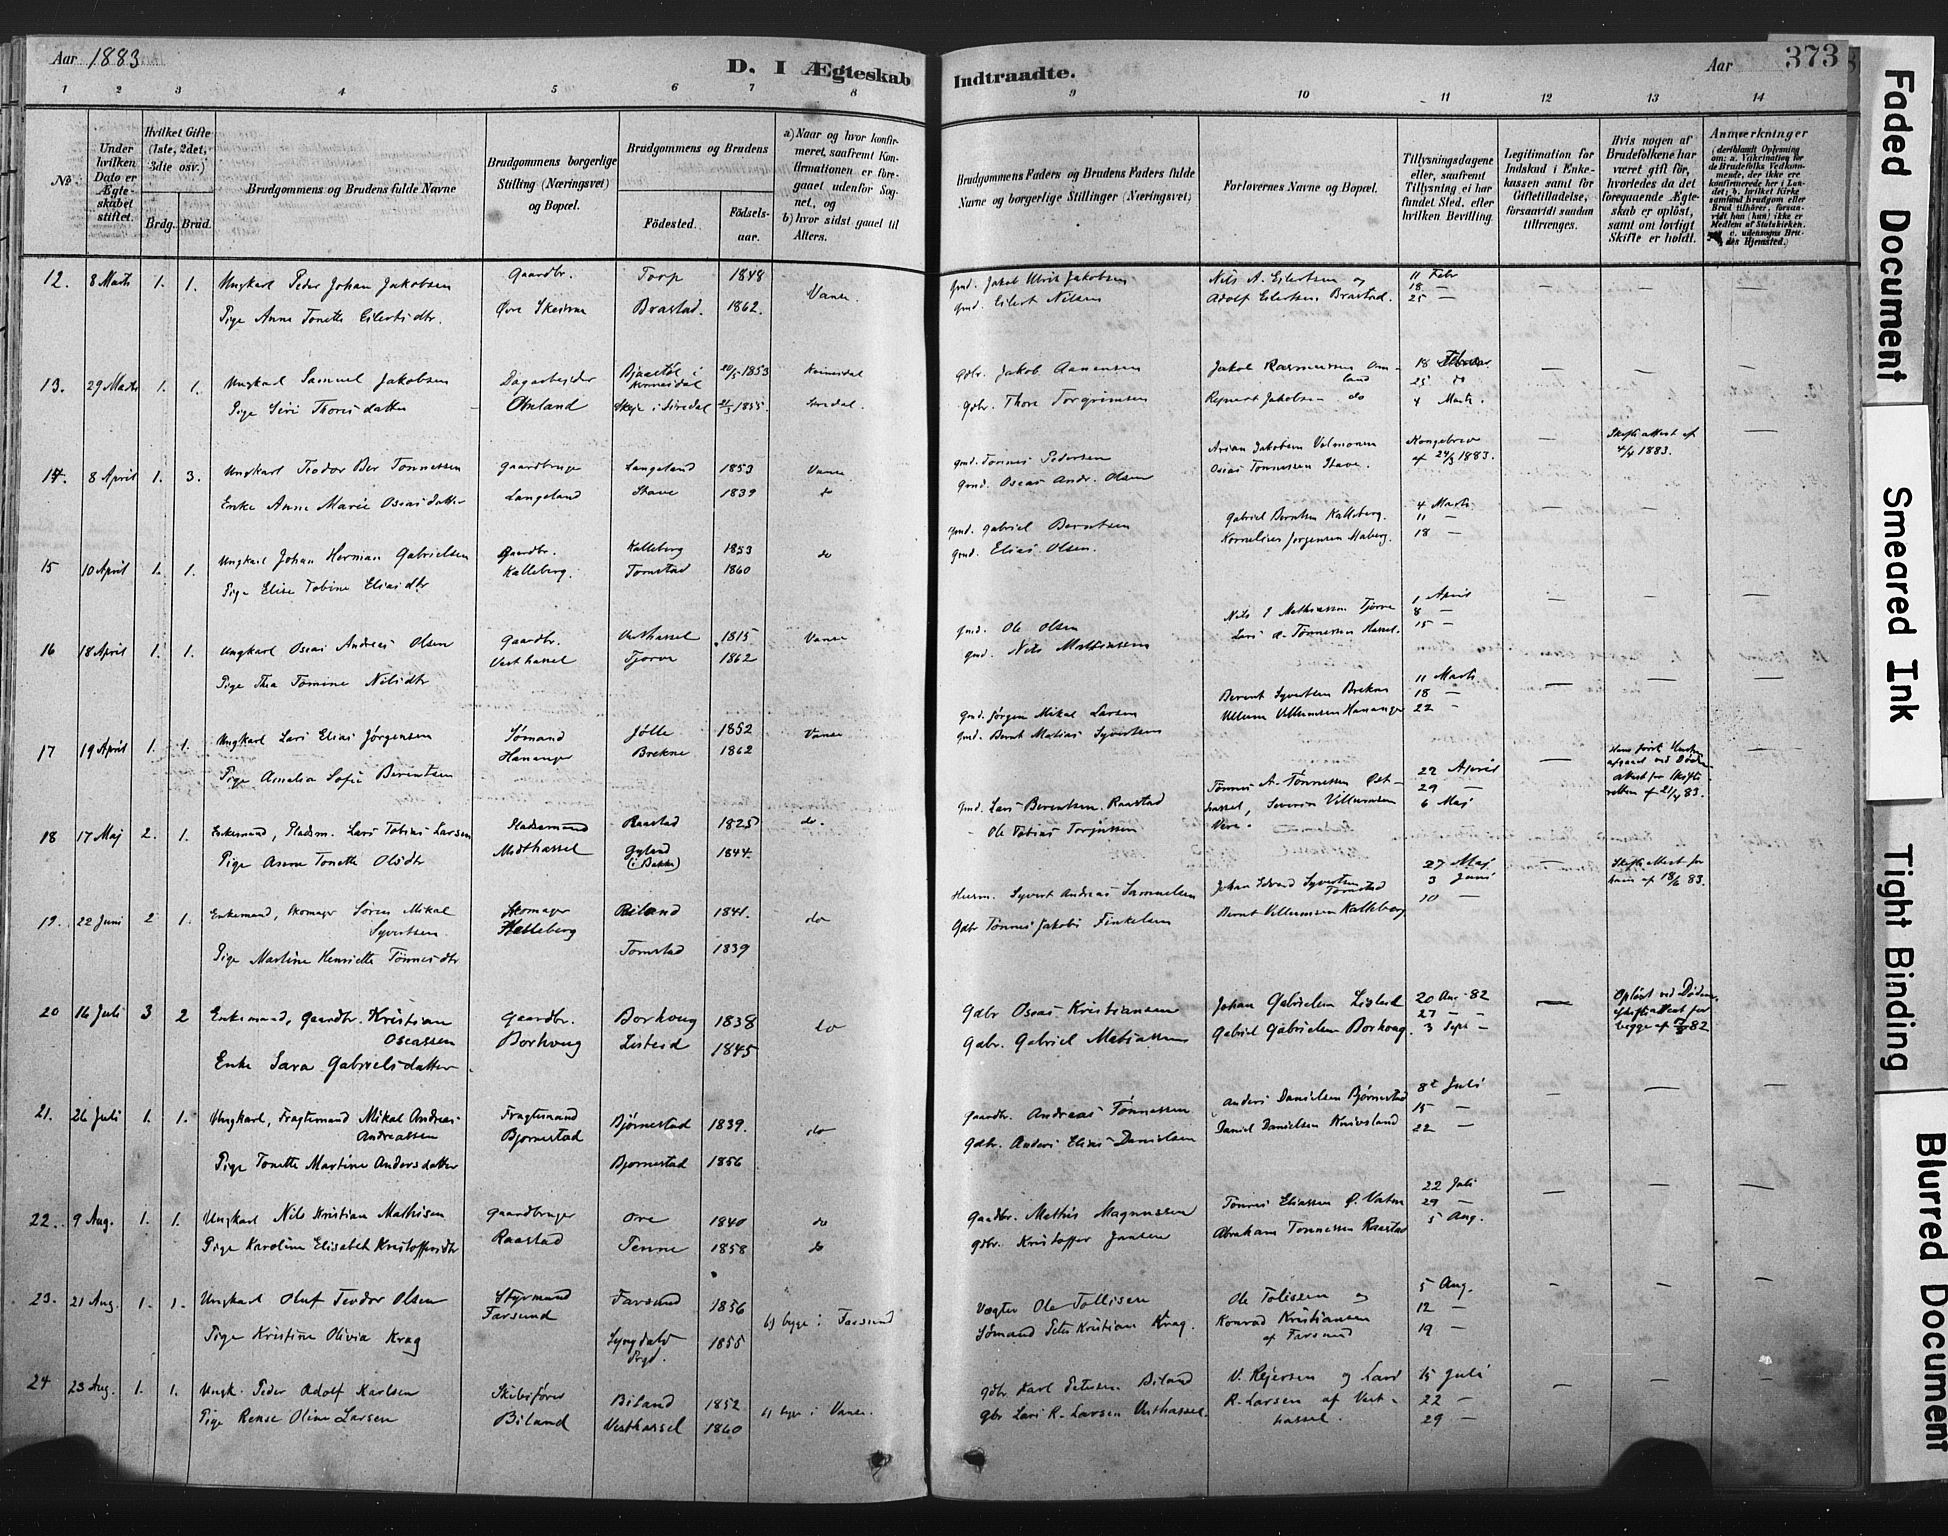 Aar 1883
D. I Ægteskab Indtraadte.
Aar
373
1 2 3 4 5 6 7 8 9 10 11 12 13 14
No.
Under hvilken Dato er Ægteskabet stiftet.
Hvilket Gifte (1ste, 2det, 3die osv.)
Brdg. Brud.
Brudgommens og Brudens fulde Navne
Brudgommens borgerlige Stilling (Næringsvei) og Bopæl.
Brudgommens og Brudens
Fødested.
Fødselsaar.
a) Naar og hvor konfirmeret, saafremt Konfirmationen er foregaaet udenfor Sognet, og
b) hvor sidst gaaet til Alters.
Brudgommens Faders og Brudens Faders fulde Navne og borgerlige Stillinger (Næringsvei)
Forlovernes Navne og Bopæl.
Tillysningsdagene eller, saafremt Tillysning ei har fundet Sted, efter hvilken Bevilling.
Legitimation for Indskud i Enkekassen samt for Giftetilladelse, forsaavidt saadan tiltrænges.
Hvis nogen af Brudefolkene har været gift før, hvorledes da det foregaaende Ægteskab er opløst, samt om lovligt Skifte er holdt.
Anmærkninger
(deriblandt Oplysning om: a. Vakcination for de Brudefolks Vedkommende, der ikke ere konfirmerede her i Landet; b. hvilket Kirkesamfund Brudgom eller Brud tilhører, forsaavidt han (hun) ikke er Medlem af Statskirken. c. udensogns Brudes Hjemsted.)
12. 8 Marts 1. 1. Ungkarl Peder Johan Jakobsen Gaardbr. Torp 1848 Vanse. Gmd. Jakob Ulrik Jakobsen Nils A. Eilertsen og 11 Febr
Pige Anne Tonette Eilertsdtr. Øvre Brastad. 1862. Gmd. Eilert Nilsen Adolf Eilertsen Brastad. 18 —
25 —
13. 29 Marts 1. 1. Ungkarl Samuel Jakobsen Dagarbeider i 20/5 1853 Gdbr. Jakob Aanensen Jakob Rasmussen Omland 18 Februar
Pige Siri Thoresdatter Omland i Siredal 1855. Siredal. Gdbr. Thore Torgrimsen Jakobsen do 25 do
4 Marts.
14. 8 April 1. 3. Ungkarl Teodor Ber Tønnessen Gaardbruger Langeland 1853 Vanse Gmd. Tønnes Pedersen Jakobsen Kongebrev
Enke Anne Marie Oseasdatter Langeland Stave 1839 do Gmd. Oseas Andr. Olsen Oseas Tønnessen Stave. af 24/3 1883. Skifteattest af 4/4 1883.
15 10 April 1. 1. Ungkarl Johan Herman Gabrielsen Gaardbr. Kalleberg 1853 do Gmd. Gabriel Berntsen Gabriel Berntsen Kalleberg. 4 Marts
Pige Elise Tobine Eliasdtr Kalleberg. Tomstad 1860 Gmd. Elias Olsen. Kornelius Jørgensen Haberg. 11 —
18 —
16 18 April 1. 1. Ungkarl Oseas Andreas Olsen Gaardbr. Vesthassel 1815 Vanse Gmd. Ole Olsen Nils Mathiassen Tjørve 1 April
Pige Thea Tomine Nilsdtr Vesthassel Tjørve 1862 Gmd. Nils Mathiassen Lars A. Tønnessen Hassel. 8 —
15 —
17 19 April 1. 1. Ungkarl Lars Elias Jørgensen Sømand Jølle 1852 Vanse Gmd. Jørgen Mikal Larsen Berent Syvertsen Brekne 11 Marts
Pige Amalia Sofie Berentsen Hananger Brekne 1862 Gmd. Bernt Matias Syvertsen Villum Villumsen Hananger 18 —
22 —
18 17 Maj 2. 1. Enkemand, Pladsm. Lars Tobias Larsen Pladsemand Raastad 1825 do. Gmd. Lars Berentsen Raastad Tønnes A. Tønnessen Østhassel, Severin Villumsen Vere. 22 April
Pige Anne Tonette Olsdtr Midthassel Gyland (i Bakke) 1844. Ole Tobias Torjussen 29 —
6 Maj
Hans første ved Døden attest fra Skifteretten af 21/4 83.
19. 22 Juni 2 1. Enkemand, Skomager Søren Mikal Syvertsen Skomager Biland 1841. do Husm. Syvert Andreas Samuelsen Johan Edvard Syvertsen Tomstad 27 Maj
Pige Martine Henriette Tønnesdtr Kalleberg Tomstad 1839 Gdbr Tønnes Jakob Finkelsen Bernt Villumsen Kalleberg 3 Juni
10 —
Skifteattest for ham af 18/6 83.
20 16 Juli 3 2 Enkemand, Gaardbr. Kristian Oseassen Gaardbr. Borhoug 1838 do Gdbr Oseas Kristiansen Johan Gabrielsen Listeid 20 Aug. 82
Enke Sara Gabrielsdatter. Borhoug Listeid 1845 Gdbr. Gabriel Mathiassen Gabriel Gabrielsen Borhoug. 27 — —
3 Sept —
Opløst ved Døden. Skifteattest for begge af 82
21. 26 Juli 1. 1. Ungkarl, Fragtemand Mikal Andreas Andreassen Fragtemand Bjørnestad 1839. do Gaardbr. Andreas Tønnessen Anders Danielsen Bjørnestad 8de Juli
Pige Tonette Martine Andersdatter Bjørnestad Bjørnestad 1856 Gdbr. Anders Elias Danielsen Daniel Danielsen Knivsland 15 —
22 —
22. 9 Aug. 1. 1. Ungkarl Nils Kristian Mathisen Gaardbruger Ore 1840 do Gaardbr. Mathis Magnussen Tønnes Eliassen Ø. Vatne 22 Juli
Pige Karoline Elisabeth Kristoffersdtr Raastad Tenne 1858 do Gdbr. Kristoffer Jansen Abraham Tønnessen Raastad 29 —
5 Aug.
23. 21 Aug. 1. 1. Ungkarl Oluf Teodor Olsen Styrmand Farsund 1856 b) begge i Farsund Vægter Ole Tollisen Ole Tolissen og 5 Aug.
Pige Kristine Olivia Krag Farsund Lyngdals Prgd. 1855 Sømand Peter Kristian Krag. Konrad Kristiansen af Farsund 12 —
19 —
24 23 Aug. 1. 1. Ungk. Peder Adolf Karlsen Skibsfører Biland 1852 b) begge i Vanse. Gdbr Karl Petersen Biland V. Rejersen og Lars 15 Juli
Pige Rense Oline Larsen Biland Vesthassel 1860 Gbr Lars R. Larsen Vesthassel. R. Larsen af Vesthassel. 22 —
29 —
Faded Document
Smeared Ink
Tight Binding
Blurred Document